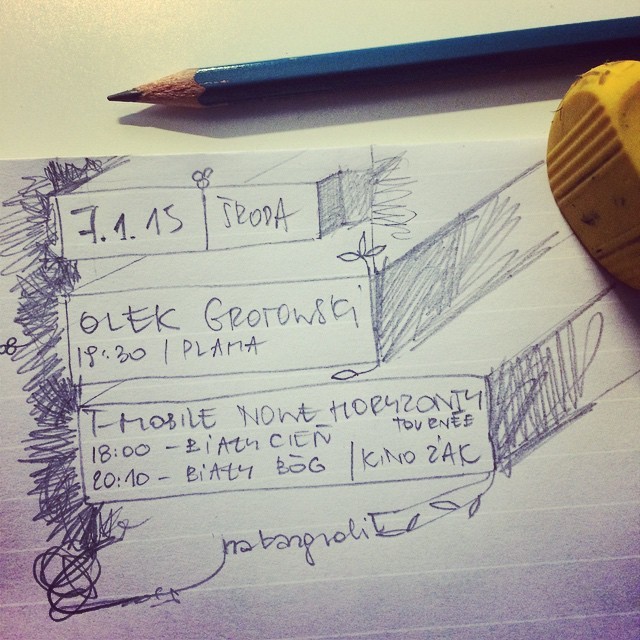 7.1.15 ŚRODA
OLEK GROTOWSKI
19:30 / PLAMA
T-MOBILE NOWE HORYZONTY
TOURNÉE
18:00 - BIAŁY CIEŃ
20:10 - BIAŁY BÓG / KINO ŻAK
nabazgrolił